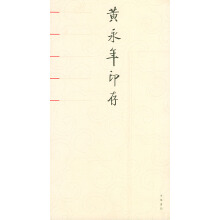 黄永年印存